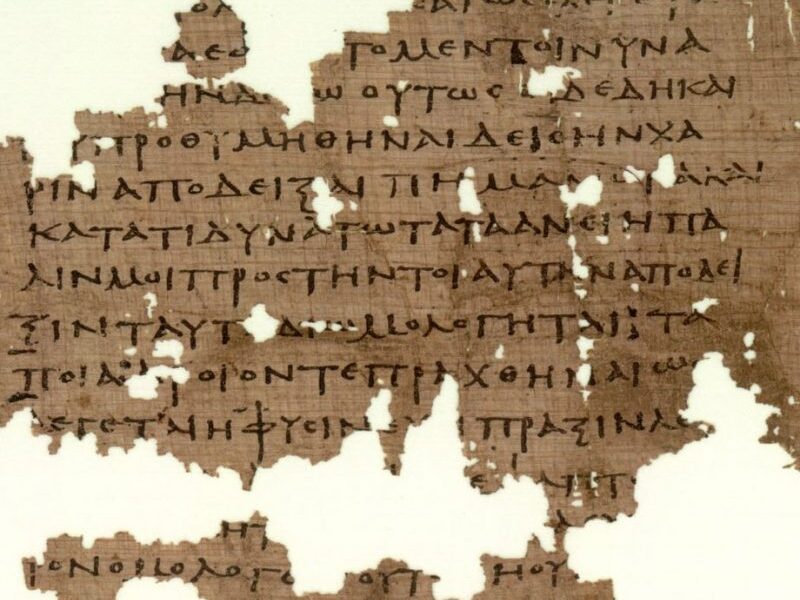 ΤΟΜΕΝΤΟΙΝΥΝΑ
ΗΝΔ Ω ΟΥΤΩΣ ΔΕΔΗΚΑΙ
ΠΡΟΘΥΜΗΘΗΝΑΙΔΕΙΣΗΝΧΑ
ΡΙΝΑΠΟΔΕΙΞΑΙΠΗΜΑΛ ΚΑΙ
ΚΑΤΑΤΙΔΥΝΑΤΩΤΑΤΑΑΝΕΙΗΠΑ
ΛΙΝΜΟΙΠΡΟΣΤΗΝΤΟΙΑΥΤΗΝΑΠΟΔΕΙ
ΞΙΝΤΑΥΤΑΔΙΟΜΟΛΟΓΗΤΑΙ:ΤΑ
ΠΟΙΑ: ΟΙΟΝΤΕΠΡΑΧΘΗΝΑΙΩΣ
ΛΕΓΕΤΑΙΗΦΥΣΙΝΕΧΕΙΠΡΑΞΙΝΛΕ
ΟΝΟΜΟΛΟΓΕ ΟΥΤ ΗΟΥ